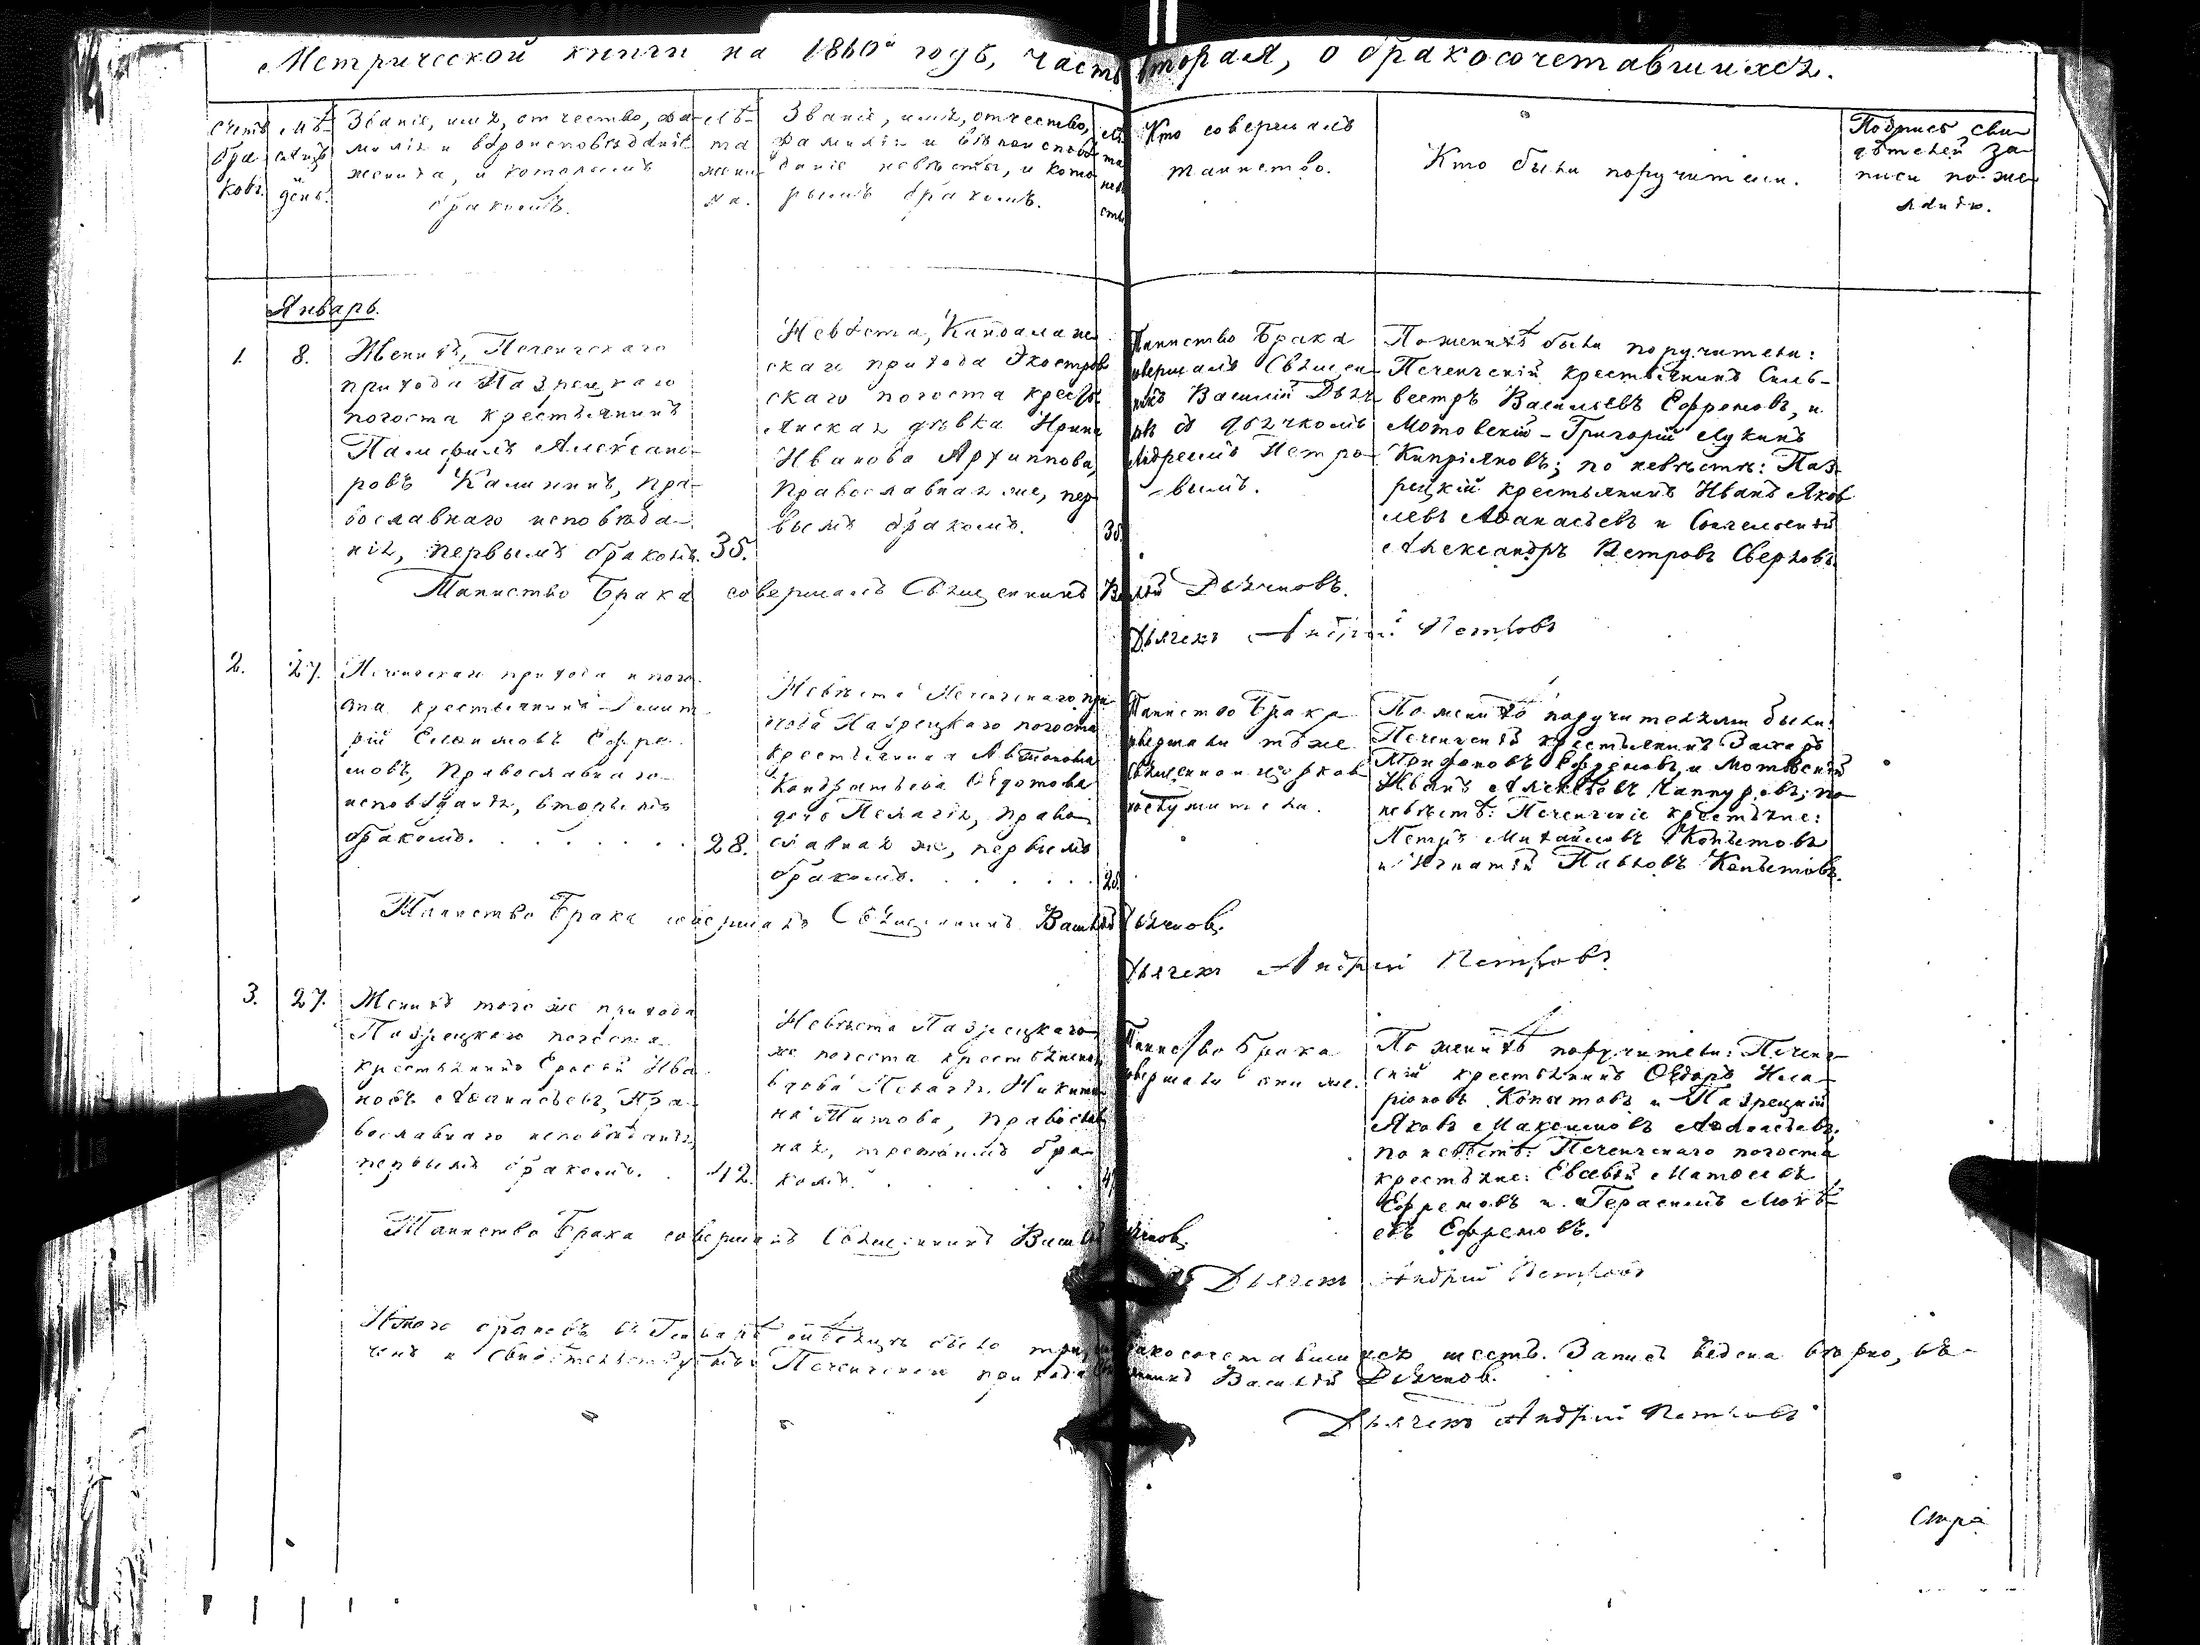 Метрической книги на 1860й годъ, часть вторая, о бракосочетавшихся.
Счетъ
бра-
ковъ.
Мѣ-
сяцъ
и
день.
Званіе, имя, отчество, фа-
милія и вѣроисповѣданіе
жениха, и которымъ
бракомъ.
Лѣ-
та
жени-
ха.
Званіе, имя, отчество,
фамилія и вѣроисповѣ-
даніе невѣсты, и кото-
рымъ бракомъ.
Лѣ
та
невѣ
сты
Кто совершалъ
таинство.
Кто были поручители.
Подпись сви-
дѣтелей за-
писи по же-
ланію.
Январь.
1.
8.
Женихъ, Печенгскаго
прихода Пазрецкаго
погоста крестьянинъ
Памфилъ Александ-
ровъ Калининъ, пра-
вославнаго исповѣда-
нія, первымъ бракомъ.
35.
Невѣста, Кандалакш-
скаго прихода Экостров-
скаго погоста кресть-
янская дѣвка Ирина
Иванова Архиппова,
православная же, пер-
вымъ бракомъ.
Таинство Брака
совершалъ Священ-
никъ Василій Дьяч-
ковъ съ дьячкомъ
Андреемъ Петро-
вымъ.
По женихѣ были поручители:
Печенгскій крестьянинъ Силь-
вестръ Васильевъ Ефремовъ, и
Мотовскій - Григорій Лукинъ
Кипріяновъ; по невѣстѣ: Паз-
рецкій крестьянинъ Иванъ Яков
левъ Аѳанасьевъ и Сонгельскій
Александръ Петровъ Сверловъ.
Таинство Брака совершалъ Священникъ Василій Дьячковъ.
Дьячекъ Андрей Петровъ
2.
27.
Печенгскаго прихода и пого-
ста крестьянинъ Димит-
рій Евѳимовъ Ефре-
мовъ, Православнаго
исповѣданія, вторымъ
бракомъ.
28.
Невѣста Печенгскаго при-
хода Пазрецкаго погоста
крестьянина Автонома
Кондратьева Ѳедотова
дочь Пелагія, право-
славная же, первымъ
бракомъ.
Таинство Брака
совершали тѣже
Священно и церков-
нослужители.
По женихѣ поручителями были:
Печенгскій крестьянинъ Захаръ
Трифоновъ Ефремовъ, и Мотовскій
Иванъ Алексѣевъ; по
невѣстѣ: Печенгскіе крестьяне:
Петръ Михайловъ Копытовъ
и Игнатій Павловъ Копытовъ.
Таинство Брака совершалъ Священникъ Василій Дьячковъ.
Дьячекъ Андрей Петровъ
3.
27.
Женихъ того же прихода
Пазрецкаго погоста
крестьянинъ Ерофей Ива-
новъ Аѳанасьевъ, Пра-
вославнаго исповѣданія,
первымъ бракомъ.
42.
Невѣста Пазрецкаго
же погоста крестьянская
вдова Пелагія Никити-
на Титова, православ-
ная, третьимъ бра-
комъ.
Таинство Брака
совершали они же.
По женихѣ поручители: Печенг-
скій крестьянинъ Ѳедоръ Ила-
ріоновъ Копытовъ и Пазрецкій
Яковъ Максимовъ Аѳанасьевъ.
по невѣстѣ: Печенгскаго погоста
крестьяне: Евсевій Матѳеевъ
Ефремовъ и Герасимъ Моисѣ-
евъ Ефремовъ.
Таинство Брака совершилъ Священникъ Василій Дьячковъ.
Дьячекъ Андрей Петровъ
Итого браковъ въ Генварѣ мѣсяцѣ было три, бракосочетавшихся шесть. Запись ведена вѣрно, въ
чемъ и свидѣтельствуемъ: Печенгскаго прихода Священникъ Василій Дьячковъ.
Дьячекъ Андрей Петровъ
Стра